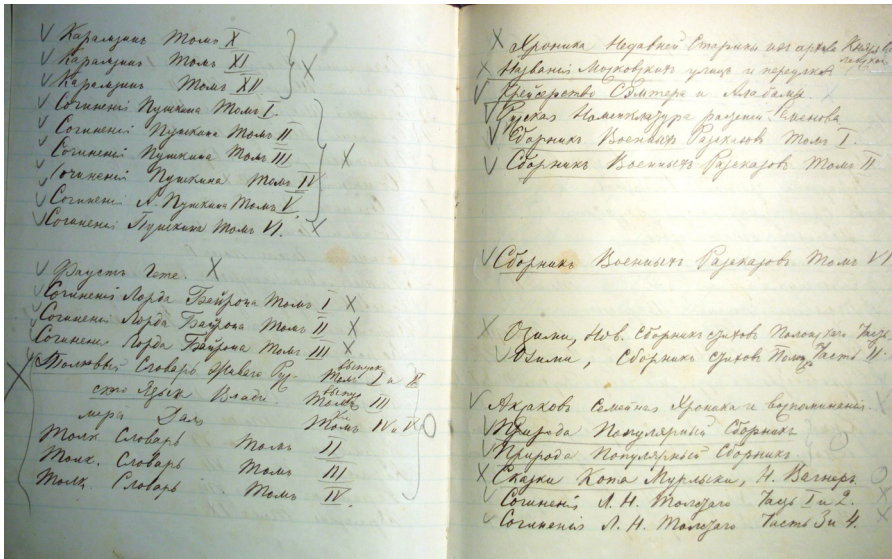 Карамзинъ Томъ X
Карамзинъ Томъ XI
Карамзинъ Томъ XII
Сочиненiй Пушкина Томъ I.
Сочиненiй Пушкина Томъ II
Сочиненiй Пушкина Томъ III
Сочиненiй Пушкина Томъ IV
Сочиненiй А. Пушкина Томъ V.
Сочиненiй Пушкина Томъ VI.
Фаустъ Гете.
Сочиненiй Лорда Байрона Томъ I
Сочиненiй Лорда Байрона Томъ II
Сочиненiй Лорда Байрона Томъ III
Толковый Словарь Живаго Ру- выпуск Томъ I и II
скаго Языка Влади- выпус Томъ III
мира Даль Томъ IV и V
Толк Словарь Томъ II
Толк. Словарь Томъ III
Толк. Словарь Томъ IV.
Хроника Недавней Старины изъ архива Князя
Названiя Московскихъ улицъ и переулковъ
Крейсерство Сэмтера и Алабамы
Русская Номенклатура растенiй Семенова
Сборникъ Военныхъ Разсказовъ Томъ I.
Сборникъ Военныхъ Разсказовъ Томъ II
Сборникъ Военныхъ Разсказовъ Томъ VI
Озими, Нов. Сборникъ стихов Полонскаго Часть
Озими, Сборникъ стихов Полон. Часть II
Аксаковъ Семейная Хроника и воспоминанiя.
Природа Популярный Сборникъ
Природа Популярный Сборникъ
Сказки Кота Мурлыки, Н. Вагнеръ
Сочиненiя Л. Н. Толстаго Часть I и 2.
Сочиненiя Л. Н. Толстаго Часть 3 и 4.